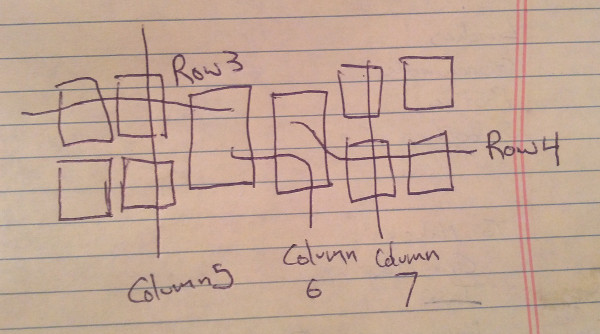 Row 3
Row 4
Column 5
Column
6
Column
7